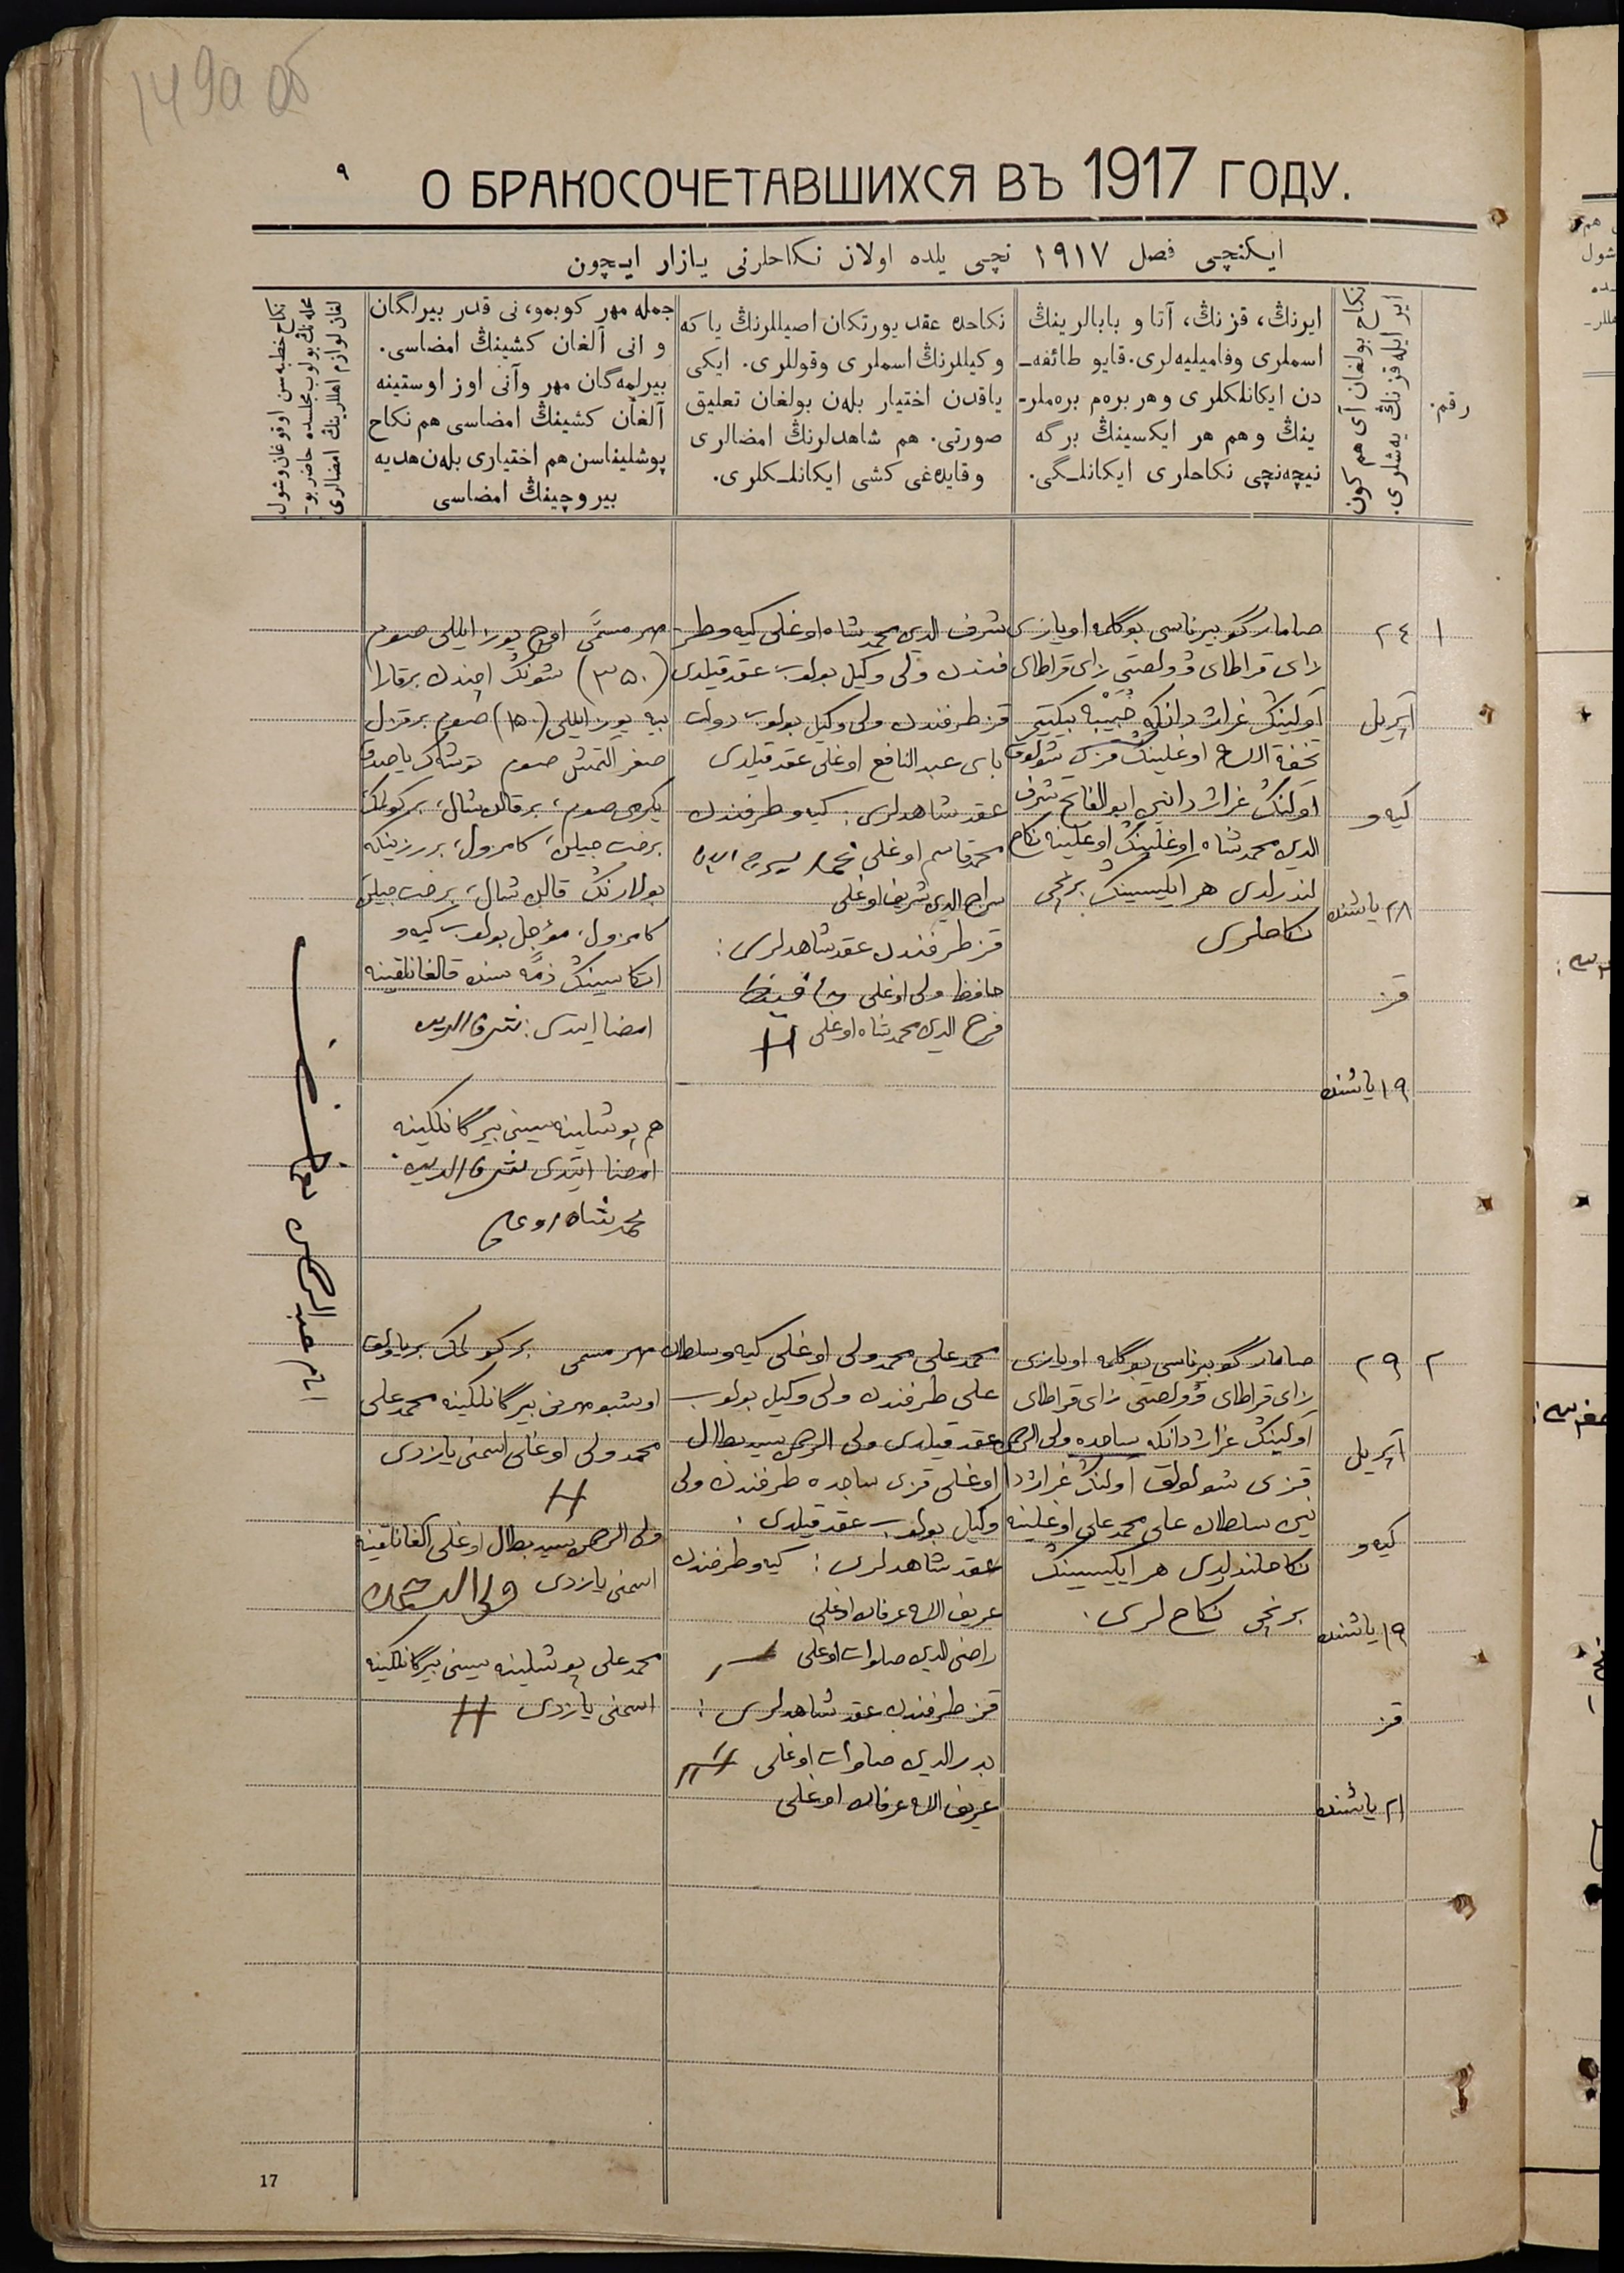 149а об
۹
О БРАКОСОЧЕТАВШИХСЯ ВЪ 1917 ГОДУ.
ایکنچی فصل ۱۹۱۷ نچی یلده اولان نکاحلرنی یازار ایچون
رقم.
نکاح بولغان آی هم کون
ایر ایله قزنڭ یه‌شلری.
ایرنڭ، قزنڭ، آتا و بابالرینڭ
اسملری وفامیلیه‌لری. قایو طائفه‌ـ
دن ایکانلکلری وهر برەم برەملرـ
ینڭ و هم هر ایکسینڭ برگه
نیچه‌نچی نکاحلری ایکانلـگی.
نکاحده عقد یورتکان اصیللرنڭ یا که
وکیللرنڭ اسملری وقوللری. ایکی
یاقدن اختیار بله‌ن بولغان تعلیق
صورتی. هم شاهدلرنڭ امضالری
وقایده‌غی کشی ایکانلـکلری.
جمله مهر کوبمو، نی قدر بیرلگان
و انی آلغان کشینڭ امضاسی.
بیرلمه‌گان مهر وآنی اوز اوستینه
آلغان کشینڭ امضاسی هم نکاح
پوشلیناسن هم اختیاری بله‌ن هدیه
بیروچینڭ امضاسی
نکاح خطبه‌سن اوقوغان وشول
محله‌نڭ بولوب مجلسده حاضر بوـ
لغان لوازم اهللرینڭ امضالری
۱
۲٤
آپریل
کیه‌و
۲۸ یاشنده
قز
۱۹ یاشنده
صامار گوبیرناسی بوگلمه اویازی
زای قراطای وولصتی زای قراطای
آولینڭ غراژدانکه حبیبه بیکنی
تحفة الله اوغلینڭ قزی شولوق
آولنڭ غراژدانی ابوالفاتح شرف
الدین محمدشاه اوغلینڭ اوغلینه نکاح
لندرلدی هر ایکیسینڭ برنچی
نکاحلری
شرف الدین محمدشاه اوغلی کیه‌و طر
فندن ولی وکیل بولوب عقد قیلدی
قز طرفندن ولی وکیل بولوب دولت
بای عبدالنافع اوغلی عقد قیلدی
عقد شاهدلری: کیه‌و طرفندن
محمد قاسم اوغلی
سراج الدین شریف اوغلی
قز طرفندن عقد شاهدلری:
حافظ ولی اوغلی حافیظ
فرح الدین محمدشاه اوغلی
مهر مسمّی اوچ یوز ایللی صوم
(۳۵۰) شونڭ اچندن برقارا
بیه یوز ایللی (۱۵۰) صوم برقزل
صغر آلتمش صوم توشاک یاصدق
یکرمی صوم، برقالن شال، برکولمک
برخت جیلن، کامزول، بر رزینکه
بولارنڭ قالن شال، برخت جیلن
کامزول، مؤجل بولوب کیه‌و
اتکاسینڭ ذمّه سنده قالغانلقینه
امضا ایتدی: شرف الدین
هم پوشلینه‌سینی بیرگانلکینه
امضا ایتدی شرف الدین
محمدشاه اوغلی
امام عبدالرحمن
۲
۲۹
آپریل
کیه‌و
۱۹ یاشنده
قز
۲۱ یاشنده
صامار گوبیرناسی بوگلمه اویازی
زای قراطای وولصتی زای قراطای
آولینڭ غراژدانکه ساجده ولی الرحمن
قزی شولوق آولنڭ غراژدا
نین سلطان علی محمد علی اوغلینه
نکاحلندیلدی هر ایکیسینڭ
برنچی نکاح لری.
محمد علی محمدولی اوغلی کیه‌و سلطان
علی طرفندن ولی وکیل بولوب
عقد قیلدی ولی الرحمن سیدبطال
اوغلی قزی ساجده طرفندن ولی
وکیل بولوب عقد قیلدی.
عقد شاهدلری: کیه‌و طرفندن
عریف الله عرفان اوغلی
راضی الدین صلوات اوغلی
قز طرفندن عقد شاهدلری:
بدرالدین صلوات اوغلی
عریف الله عرفان اوغلی
مهر مسمی برکولمک بریاولق
اوشبو مهرنی بیرگانلکینه محمد علی
محمدولی اوغلی اسمنی یازدی
ولی الرحمن سیدبطال اوغلی آلغانلقینه
اسمنی یازدی ولی الرحمن
محمد علی پوشلینه سینی بیرگانلکینه
اسمنی یازدی
17